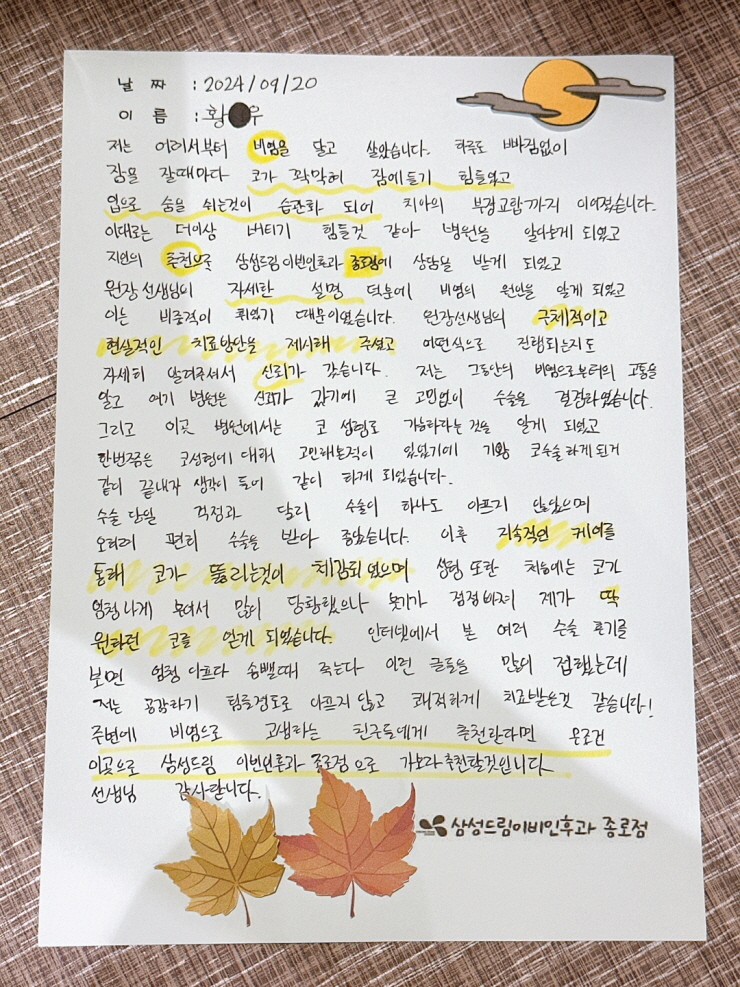 날 짜 : 2024/09/20
이 름 : 황 우
저는 어려서부터 비염을 달고 살았습니다. 하루도 빠짐없이
잠을 잘때마다 코가 꽉막혀 잠에 들기 힘들었고
입으로 숨을 쉬는것이 습관화 되어 치아의 부정교합까지 이어졌습니다.
이대로는 더이상 버티기 힘들것 같아 병원을 알아보게 되었고
지인의 추천으로 삼성드림이비인후과 종로점에 상담을 받게 되었고
원장선생님이 자세한 설명 덕분에 비염의 원인을 알게 되었고
이는 비중격이 휘었기 때문이였습니다. 원장선생님의 구체적이고
현실적인 치료방안을 제시해 주셨고 어떤식으로 진행되는지도
자세히 알려주셔서 신뢰가 갔습니다. 저는 그동안의 비염으로부터의 고통을
알고 여기 병원은 신뢰가 갔기에 큰 고민없이 수술을 결정하였습니다.
그리고 이곳 병원에서는 코 성형도 가능하다는것을 알게 되었고
한번쯤은 코성형에 대해 고민해본적이 있었기에 기왕 코수술하게된거
같이 끝내자 생각이 들어 같이 하게 되었습니다.
수술 당일 걱정과 달리 수술이 하나도 아프지 않았으며
오히려 편히 수술을 받아 좋았습니다. 이후 지속적인 케어를
통해 코가 뚫리는것이 체감되었으며 성형 또한 처음에는 코가
엄청나게 부어서 많이 당황했으나 붓기가 점점빠져 제가 딱
원하던 코를 얻게 되었습니다. 인터넷에서 본 여러 수술 후기를
보면 엄청 아프다 솜뺄때 죽는다 이런 글들을 많이 접했는데
저는 공감하기 힘들정도로 아프지 않고 쾌적하게 치료받은것 같습니다!
주변에 비염으로 고생하는 친구들에게 추천한다면 무조건
이곳으로 삼성드림 이비인후과 종로점으로 가보라 추천할것입니다.
선생님 감사합니다.
삼성드림이비인후과 종로점